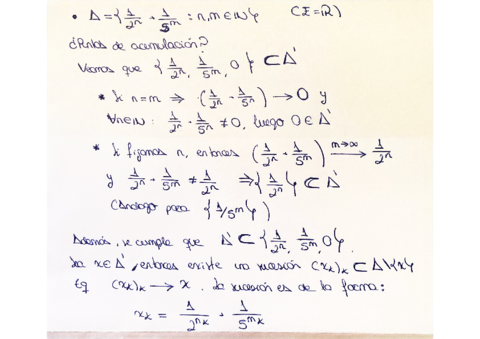 • Δ = { 1/2ⁿ + 1/5ᵐ : n,m ∈ ℕ } (E = ℝ)
¿Pntos de acumulación?
Veamos que { 1/2ⁿ, 1/5ᵐ, 0 } ⊂ Δ'
* Si n=m ⇒ (1/2ⁿ + 1/5ⁿ) → 0 y
∀n∈ℕ: 1/2ⁿ + 1/5ⁿ ≠ 0, luego 0 ∈ Δ'
* Si fijamos n, entonces (1/2ⁿ + 1/5ᵐ) →(m→∞) 1/2ⁿ
y 1/2ⁿ + 1/5ᵐ ≠ 1/2ⁿ ⇒ { 1/2ⁿ } ⊂ Δ'
(Análogo para { 1/5ᵐ })
Además, se cumple que Δ' ⊂ { 1/2ⁿ, 1/5ᵐ, 0 }.
Sea x ∈ Δ', entonces existe una sucesión (xₖ)ₖ ⊂ Δ\{x}
tq (xₖ)ₖ → x. La sucesión es de la forma:
xₖ = 1/2^{nₖ} + 1/5^{mₖ}